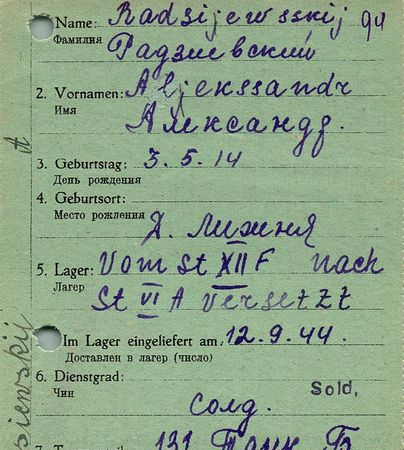 Name: Radzijewsskij 94
Фамилия Радзиевский
2. Vornamen: Aljekssandr
Имя Александр.
3. Geburtstag: 3.5.14
День рождения
4. Geburtsort:
Место рождения
Д.
5. Lager: Vom St XII F nach
Лагер St VI A versetzt
Im Lager eingeliefert am 12.9.44.
Доставлен в лагер (число)
6. Dienstgrad: Sold,
Чин солд.
131 Танк. Б